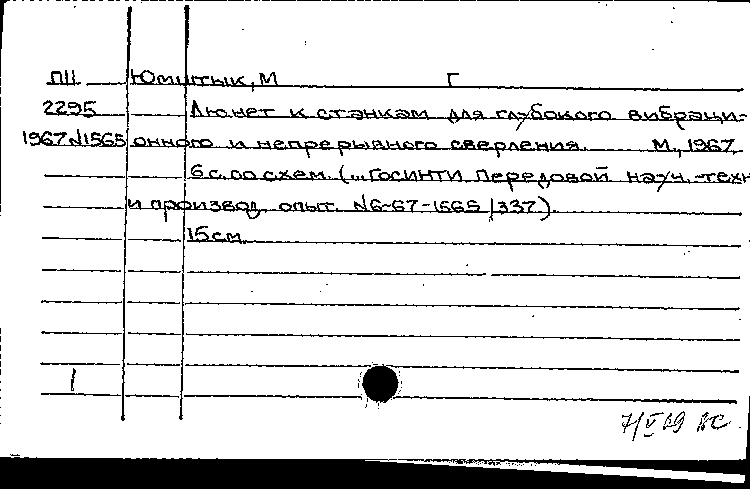 ПII Юмштык, М Г
2295 Люнет к станкам для глубокого вибраци-
1967 №1565 онного и непрерывного сверления. М., 1967
6 с. со схем. (... ГОСИНТИ Передовой науч.-техн
и производ. опыт. №6-67-1565/337).
15 см.
1
7/V 69